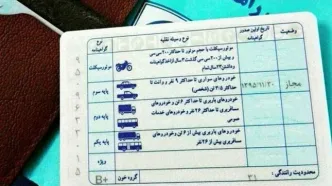 وضعیت
تاریخ اولین صدور گواهینامه
نوع وسیله نقلیه
نوع گواهینامه
موتورسیکلت با حجم موتور تا حداکثر ۲۰۰ سی سی
موتورسیکلت
مجاز
۱۳۹۵/۱۱/۳۰
خودروهای سواری تا حداکثر ۹ نفر و وانت تا
حداکثر ۳/۵ تن (شخصی)
پایه سوم
خودروهای باربری تا حداکثر ۶ تن و خودروهای
مسافربری تا حداکثر ۲۶ نفر و خودروهای خدمات
عمومی
پایه دوم
خودروهای باربری بیش از ۶ تن و خودروهای
مسافربری بیش از ۲۶ نفر
پایه یکم
ویژه
محدودیت رانندگی :
گروه خون
B+